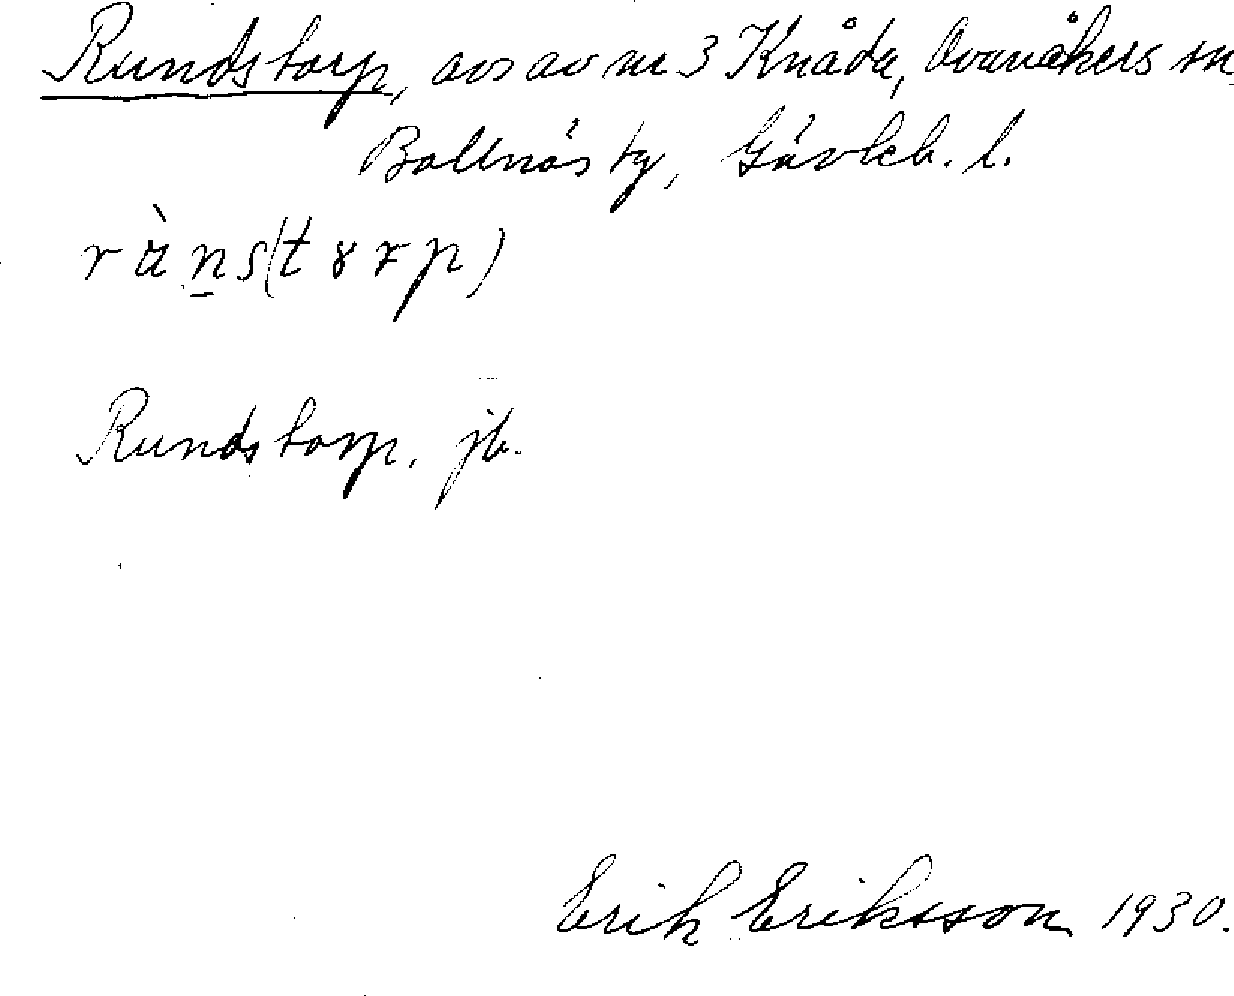 Rundstorp, avs av nr 3 Knåda, Ovanåkers sn
Bollnäs tg, Gävleb. l.
ràn̲s(tɤrp)
Rundstorp. jb.
Erik Eriksson 1930.